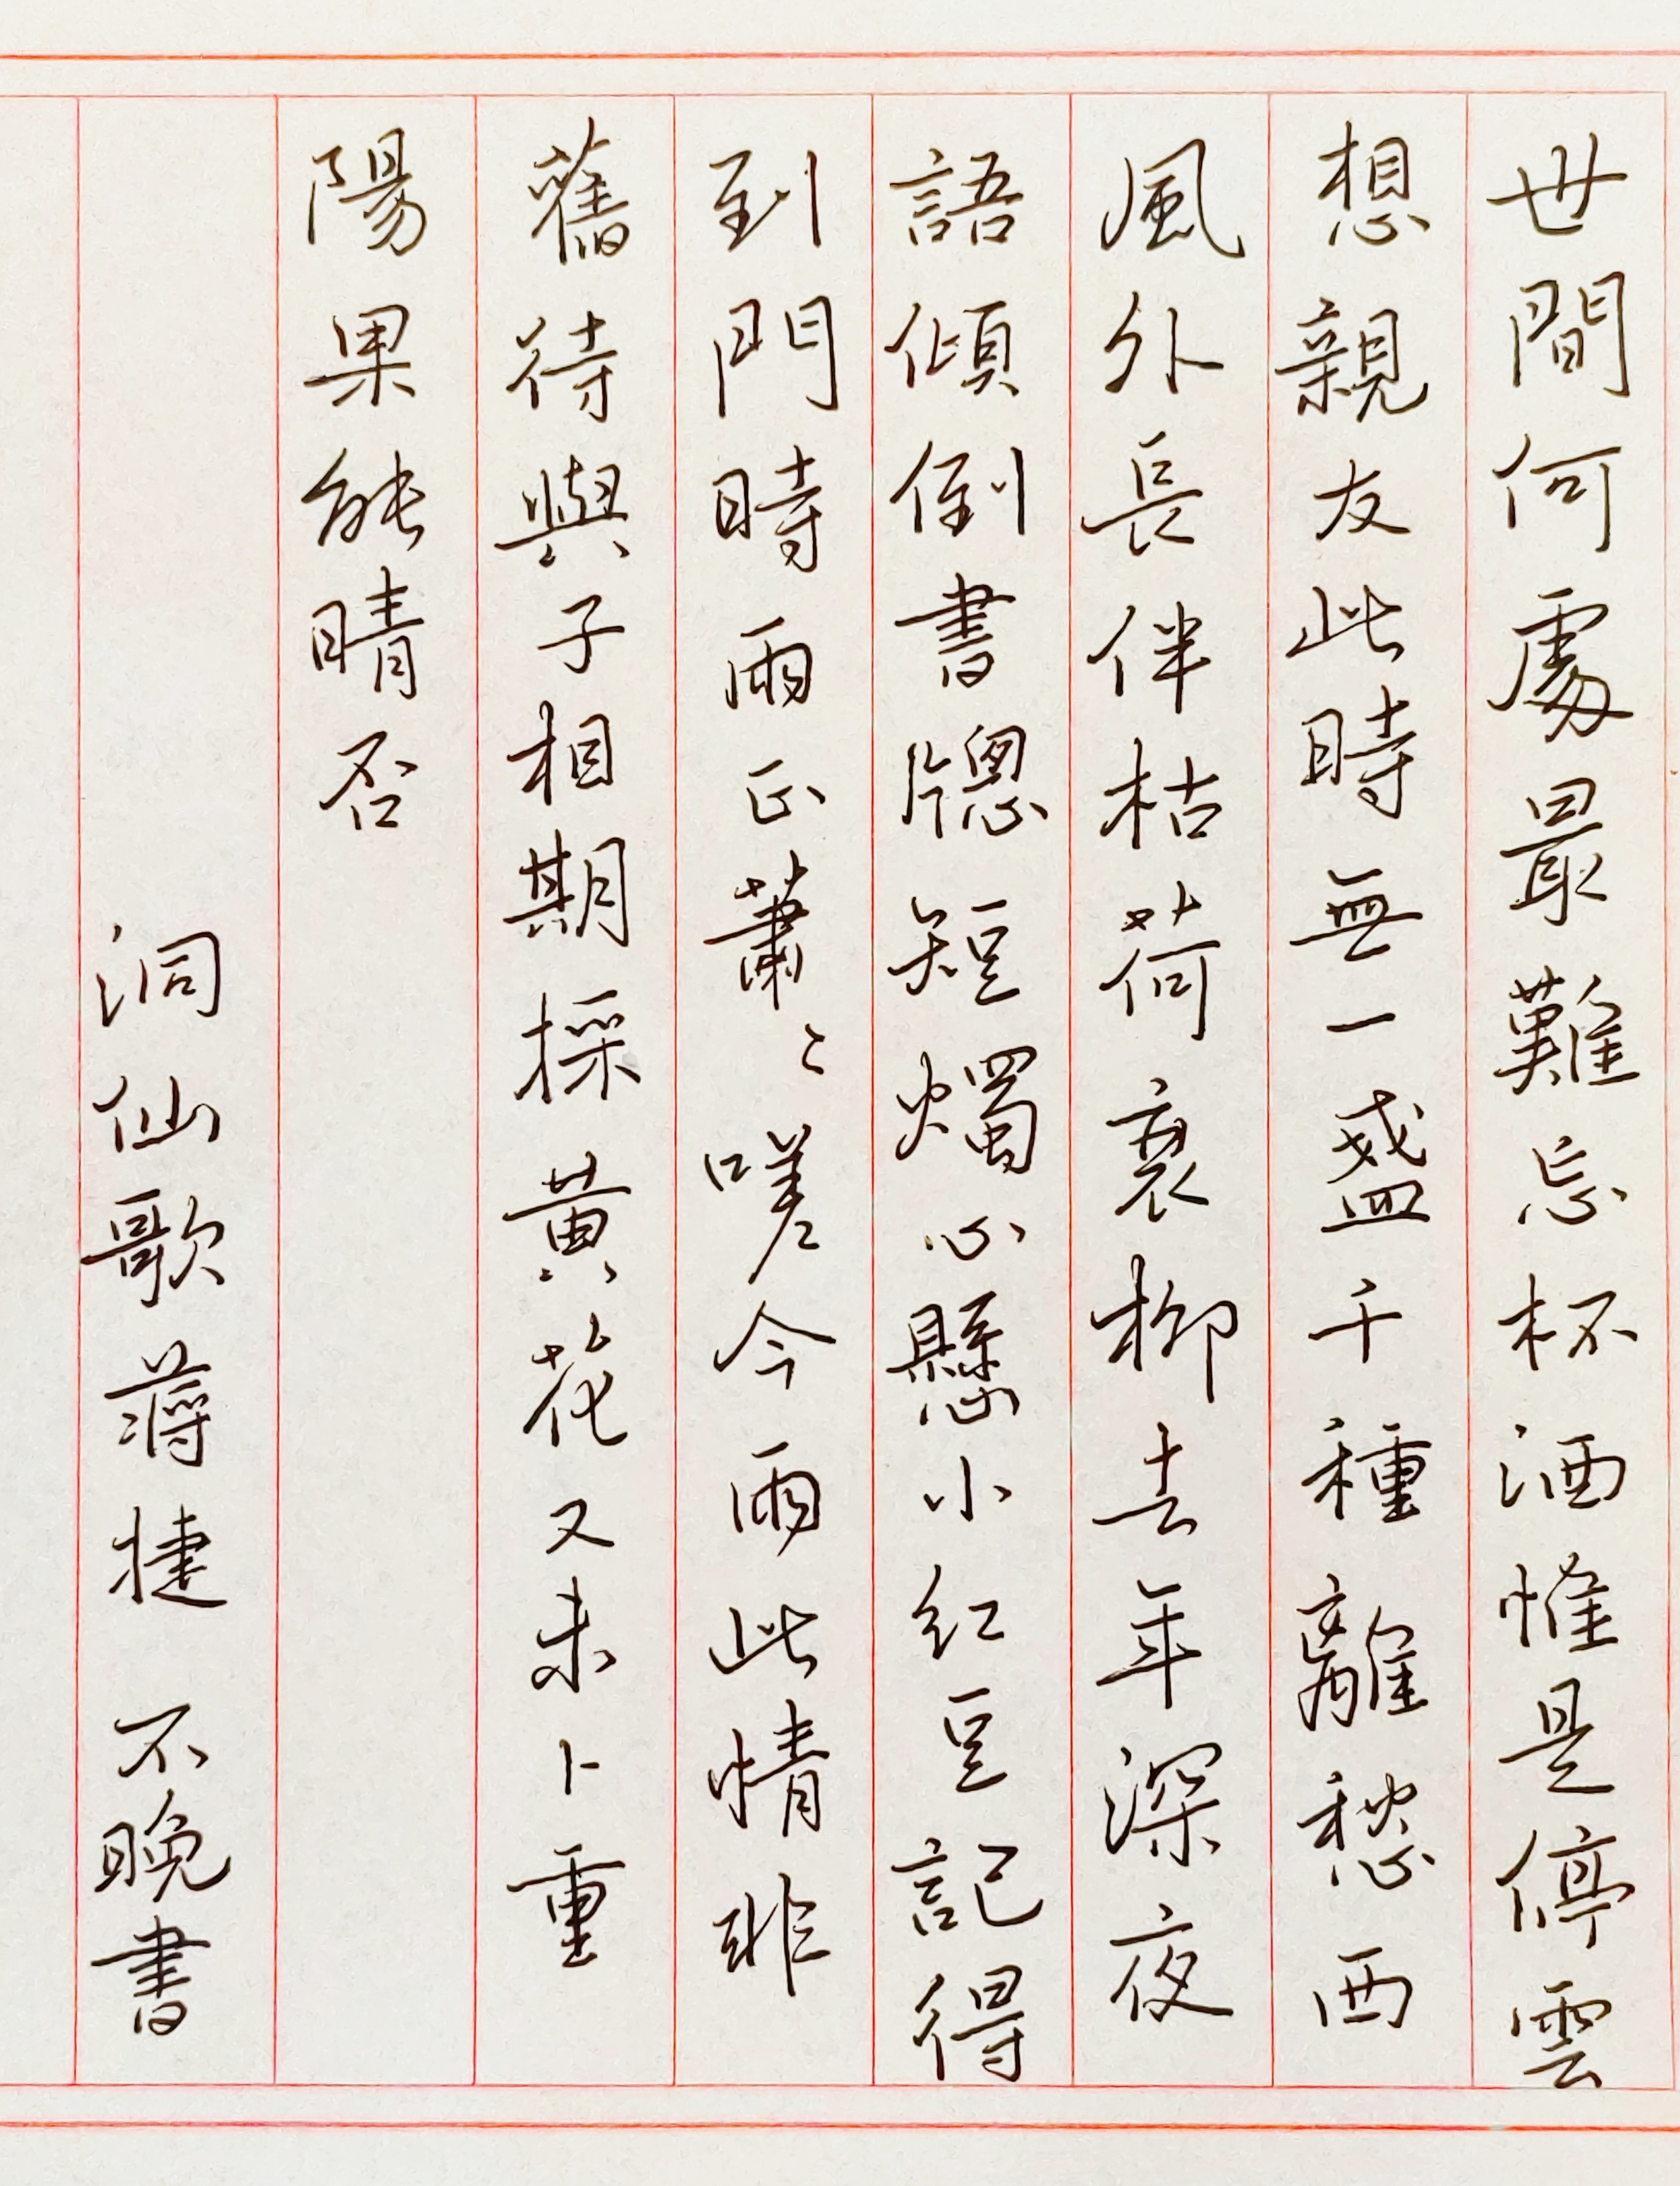 世間何處最難忘杯酒惟是停雲
想親友此時無一盞千種離愁西
風外長伴枯荷衰柳去年深夜
語傾倒書牕短燭心懸小紅豆記得
到門時雨正蕭〻嗟今雨此情非
舊待與子相期採黃花又未卜重
陽果能晴否
洞仙歌 蔣捷 不晚書